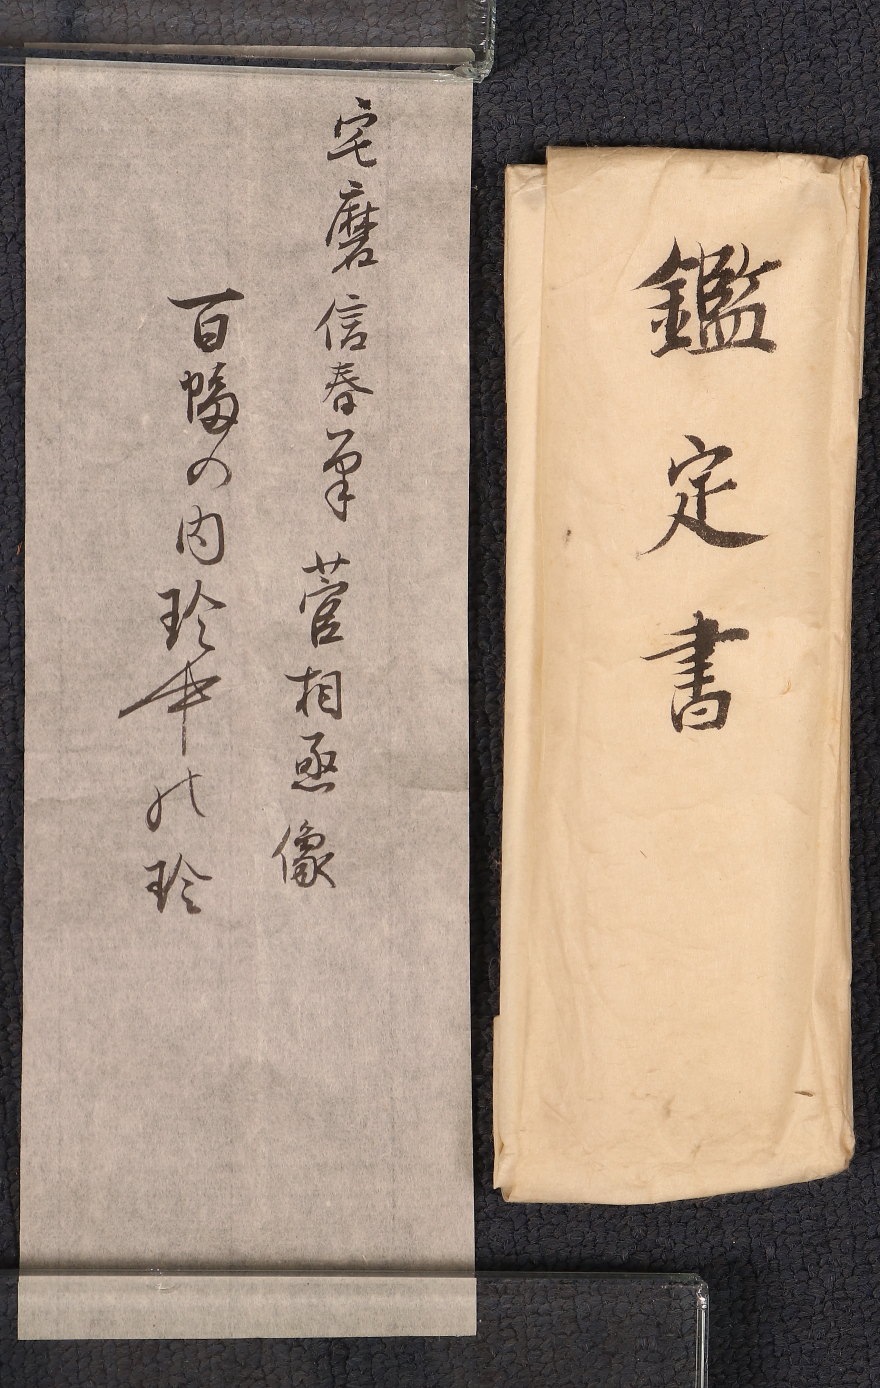 鑑定書
宅磨信春筆菅相丞像
百幅の内珍中の珍